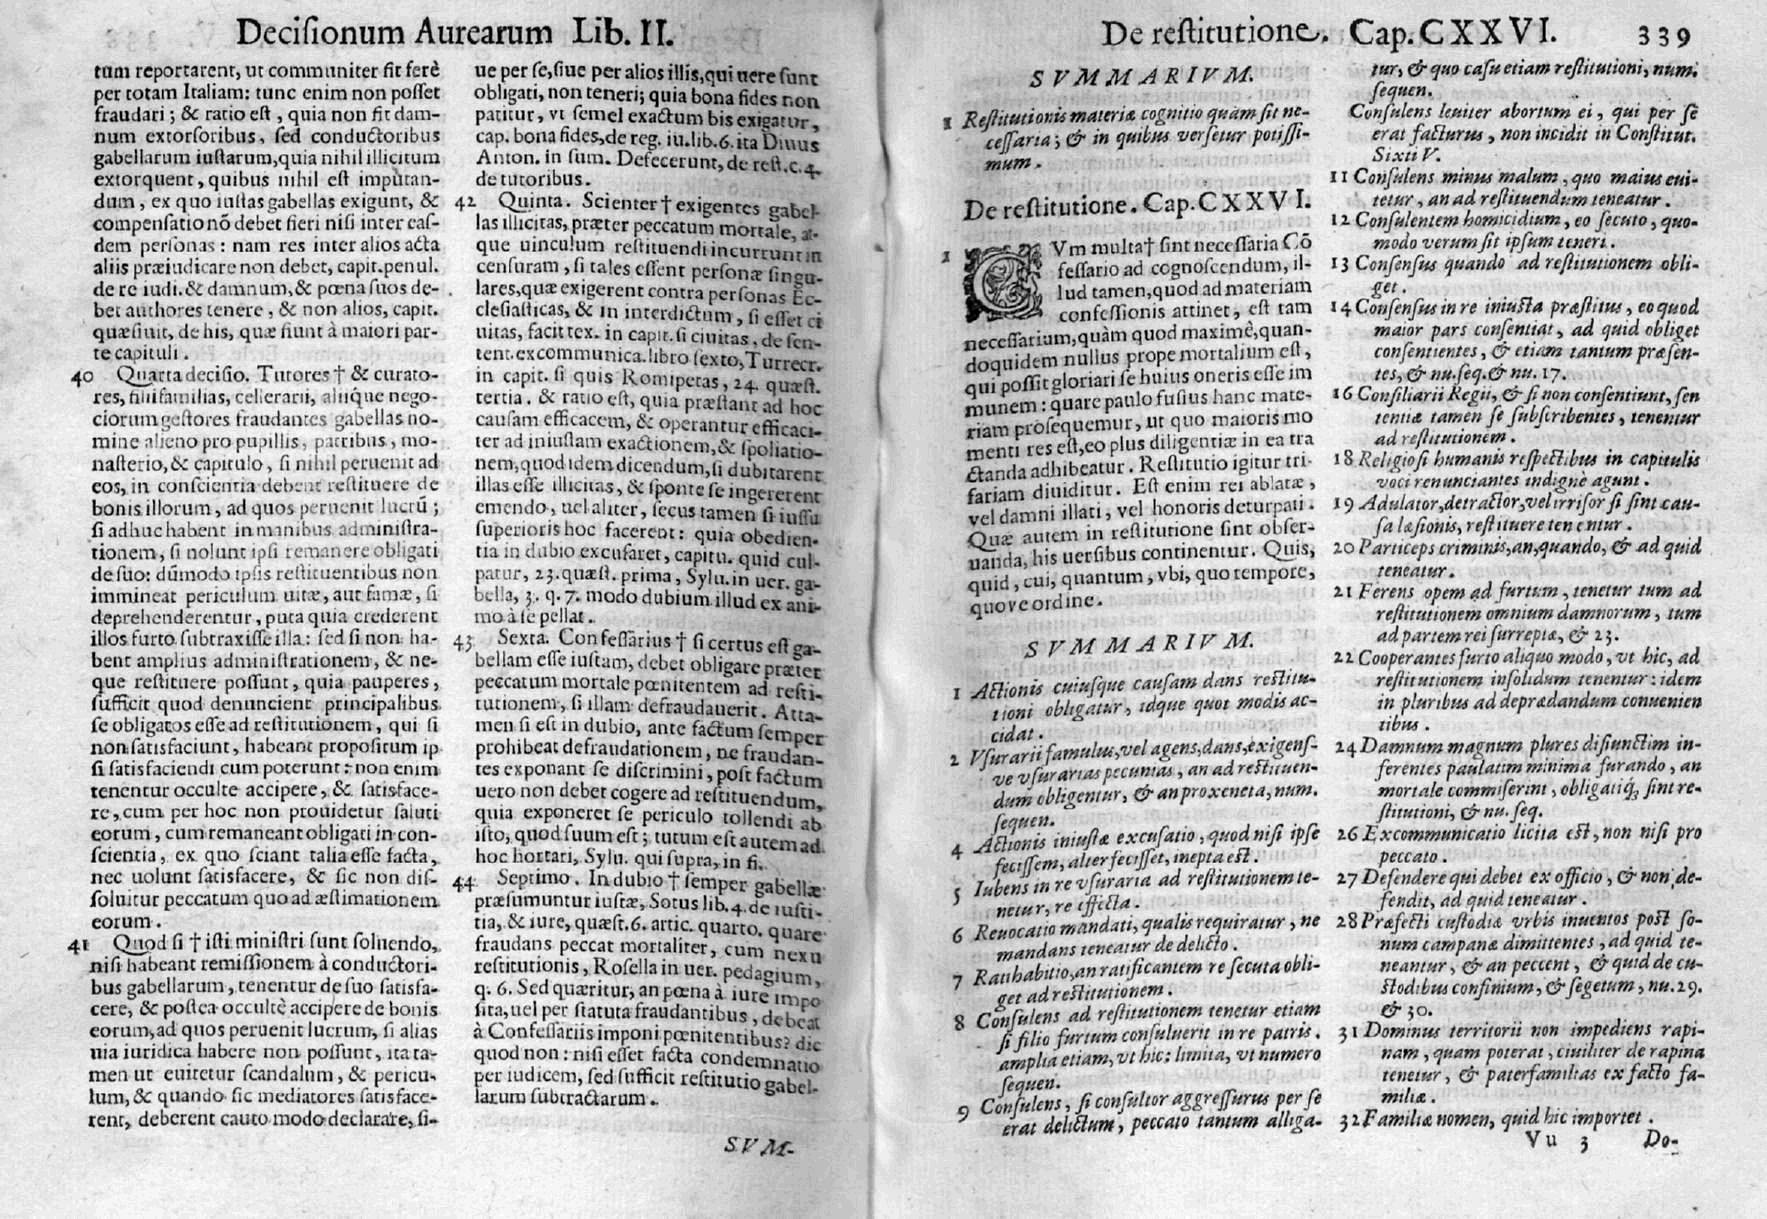 Decisionum Aurearum Lib. II.
tum reportarent, ut communiter fit ferè
per totam Italiam: tunc enim non posset
fraudari; & ratio est, quia non fit dam-
num extorsoribus, sed conductoribus
gabellarum iustarum, quia nihil illicitum
extorquent, quibus nihil est imputan-
dum, ex quo iustas gabellas exigunt, &
compensatio nō debet fieri nisi inter eas-
dem personas: nam res inter alios acta
aliis præiudicare non debet, capit. penul.
de re iudi. & damnum, & pœna suos de-
bet authores tenere, & non alios, capit.
quæsiuit, de his, quæ fiunt à maiori par-
te capituli.
40 Quarta decisio. Tutores † & curato-
res, filii familias, cellerarii, aliique nego-
ciorum gestores fraudantes gabellas no-
mine alieno pro pupillis, patribus, mo-
nasterio, & capitulo, si nihil peruenit ad
eos, in conscientia debent restituere de
bonis illorum, ad quos peruenit lucrū;
si adhuc habent in manibus administra-
tionem, si nolunt ipsi remanere obligati
de suo: dūmodo ipsis restituentibus non
immineat periculum uitæ, aut famæ, si
deprehenderentur, puta quia crederent
illos furto subtraxisse illa: sed si non ha-
bent amplius administrationem, & ne-
que restituere possunt, quia pauperes,
sufficit quod denuncient principalibus
se obligatos esse ad restitutionem, qui si
non satisfaciunt, habeant propositum ip
si satisfaciendi cum poterunt: non enim
tenentur occulte accipere, & satisface-
re, cum per hoc non prouidetur saluti
eorum, cum remaneant obligati in con-
scientia, ex quo sciant talia esse facta,
nec uolunt satisfacere, & sic non dis-
soluitur peccatum quo ad æstimationem
eorum.
41 Quod si † isti ministri sunt soluendo,
nisi habeant remissionem à conductori-
bus gabellarum, tenentur de suo satisfa-
cere, & postea occultè accipere de bonis
eorum, ad quos peruenit lucrum, si alias
uia iuridica habere non possunt, ita ta-
men ut euitetur scandalum, & pericu-
lum, & quando sic mediatores satisface-
rent, deberent cauto modo declarare, si-
ue per se, siue per alios illis, qui uere sunt
obligati, non teneri; quia bona fides non
patitur, vt semel exactum bis exigatur,
cap. bona fides, de reg. iu. lib. 6. ita Diuus
Anton. in sum. Defecerunt, de rest. c. 4.
de tutoribus.
42 Quinta. Scienter † exigentes gabel-
las illicitas, præter peccatum mortale, at-
que uinculum restituendi incurrunt in
censuram, si tales essent personæ singu-
lares, quæ exigerent contra personas Ec-
clesiasticas, & in interdictum, si esset ci
uitas, facit tex. in capit. si ciuitas, de sen-
tent. excommunica. libro sexto, Turrecr.
in capit. si quis Romipetas, 24. quæst.
tertia. & ratio est, quia præstant ad hoc
causam efficacem, & operantur efficaci-
ter ad iniustam exactionem, & spoliatio-
nem, quod idem dicendum, si dubitarent
illas esse illicitas, & sponte se ingererent
emendo, uel aliter, secus tamen si iussu
superioris hoc facerent: quia obedien-
tia in dubio excusaret, capitu. quid cul-
patur, 23. quæst. prima, Sylu. in uer. ga-
bella, 3. q. 7. modo dubium illud ex ani-
mo à se pellat.
43 Sexta. Confessarius † si certus est ga-
bellam esse iustam, debet obligare præter
peccatum mortale pœnitentem ad resti-
tutionem, si illam defraudauerit. Atta-
men si est in dubio, ante factum semper
prohibeat defraudationem, ne fraudan-
tes exponant se discrimini, post factum
uero non debet cogere ad restituendum,
quia exponeret se periculo tollendi ab
isto, quod suum est; tutum est autem ad
hoc hortari, Sylu. qui supra, in fi.
44 Septimo. In dubio † semper gabellæ
præsumuntur iustæ, Sotus lib. 4. de iusti-
tia, & iure, quæst. 6. artic. quarto. quare
fraudans peccat mortaliter, cum nexu
restitutionis, Rosella in uer. pedagium,
q. 6. Sed quæritur, an pœna à iure impo
sita, uel per statuta fraudantibus, debeat
à Confessariis imponi pœnitentibus? dic
quod non: nisi esset facta condemnatio
per iudicem, sed sufficit restitutio gabel-
larum subtractarum.
SVM-
De restitutione. Cap. CXXVI. 339
SVMMARIVM.
1 Restitutionis materiæ cognitio quàm sit ne-
cessaria; & in quibus versetur potissi-
mum.
De restitutione. Cap. CXXVI.
1 CVm multa † sint necessaria Cō
fessario ad cognoscendum, il-
lud tamen, quod ad materiam
confessionis attinet, est tam
necessarium, quàm quod maximè, quan-
doquidem nullus prope mortalium est,
qui possit gloriari se huius oneris esse im
munem: quare paulo fusius hanc mate-
riam prosequemur, ut quo maioris mo
menti res est, eo plus diligentiæ in ea tra
ctanda adhibeatur. Restitutio igitur tri-
fariam diuiditur. Est enim rei ablatæ,
vel damni illati, vel honoris deturpati.
Quæ autem in restitutione sint obser-
uanda, his uersibus continentur. Quis,
quid, cui, quantum, vbi, quo tempore,
quove ordine.
SVMMARIVM.
1 Actionis cuiusque causam dans restitu-
tioni obligatur, idque quot modis ac-
cidat.
2 Vsurarii famulus, vel agens, dans, exigens-
ve vsurarias pecunias, an ad restituen-
dum obligentur, & an proxeneta, num.
sequen.
4 Actionis iniustæ excusatio, quod nisi ipse
fecissem, alter fecisset, inepta est.
5 Iubens in re vsuraria ad restitutionem te-
netur, re effecta.
6 Reuocatio mandati, qualis requiratur, ne
mandans teneatur de delicto.
7 Ratihabitio, an ratificantem re secuta obli-
get ad restitutionem.
8 Consulens ad restitutionem tenetur etiam
si filio furtum consuluerit in re patris.
amplia etiam, vt hic: limita, vt numero
sequen.
9 Consulens, si consultor aggressurus per se
erat delictum, peccato tantum alliga-
tur, & quo casu etiam restitutioni, num.
sequen.
Consulens leuiter abortum ei, qui per se
erat facturus, non incidit in Constitut.
Sixti V.
11 Consulens minus malum, quo maius eui-
tetur, an ad restituendum teneatur.
12 Consulentem homicidium, eo secuto, quo-
modo verum sit ipsum teneri.
13 Consensus quando ad restitutionem obli-
get.
14 Consensus in re iniusta præstitus, eo quod
maior pars consentiat, ad quid obliget
consentientes, & etiam tantum præsen-
tes, & nu. seq. & nu. 17.
16 Consiliarii Regii, & si non consentiunt, sen
tentiæ tamen se subscribentes, tenentur
ad restitutionem.
18 Religiosi humanis respectibus in capitulis
voci renunciantes indignè agunt.
19 Adulator, detractor, vel irrisor si sint cau-
sa læsionis, restituere tenentur.
20 Particeps criminis, an, quando, & ad quid
teneatur.
21 Ferens opem ad furtum, tenetur tum ad
restitutionem omnium damnorum, tum
ad partem rei surreptæ, & 23.
22 Cooperantes furto aliquo modo, vt hic, ad
restitutionem insolidum tenentur: idem
in pluribus ad deprædandum conuenien
tibus.
24 Damnum magnum plures disiunctim in-
ferentes paulatim minima furando, an
mortale commiserint, obligatiq́; sint re-
stitutioni, & nu. seq.
26 Excommunicatio licita est, non nisi pro
peccato.
27 Defendere qui debet ex officio, & non de-
fendit, ad quid teneatur.
28 Præfecti custodiæ vrbis inuentos post so-
num campanæ dimittentes, ad quid te-
neantur, & an peccent, & quid de cu-
stodibus confinium, & segetum, nu. 29.
& 30.
31 Dominus territorii non impediens rapi-
nam, quam poterat, ciuiliter de rapina
tenetur, & paterfamilias ex facto fa-
miliæ.
32 Familiæ nomen, quid hic importet.
Vu 3 Do-